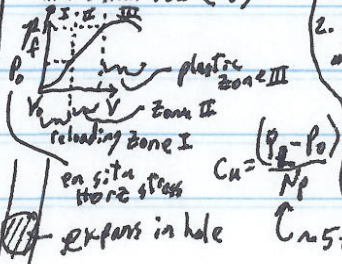 P I · II III
P_f
P_o
plastic
zone III
V_o V
zone II
reloading zone I
en situ
Horz stress
C_u = (P_L - P_o) / N_p
expans in hole
2.